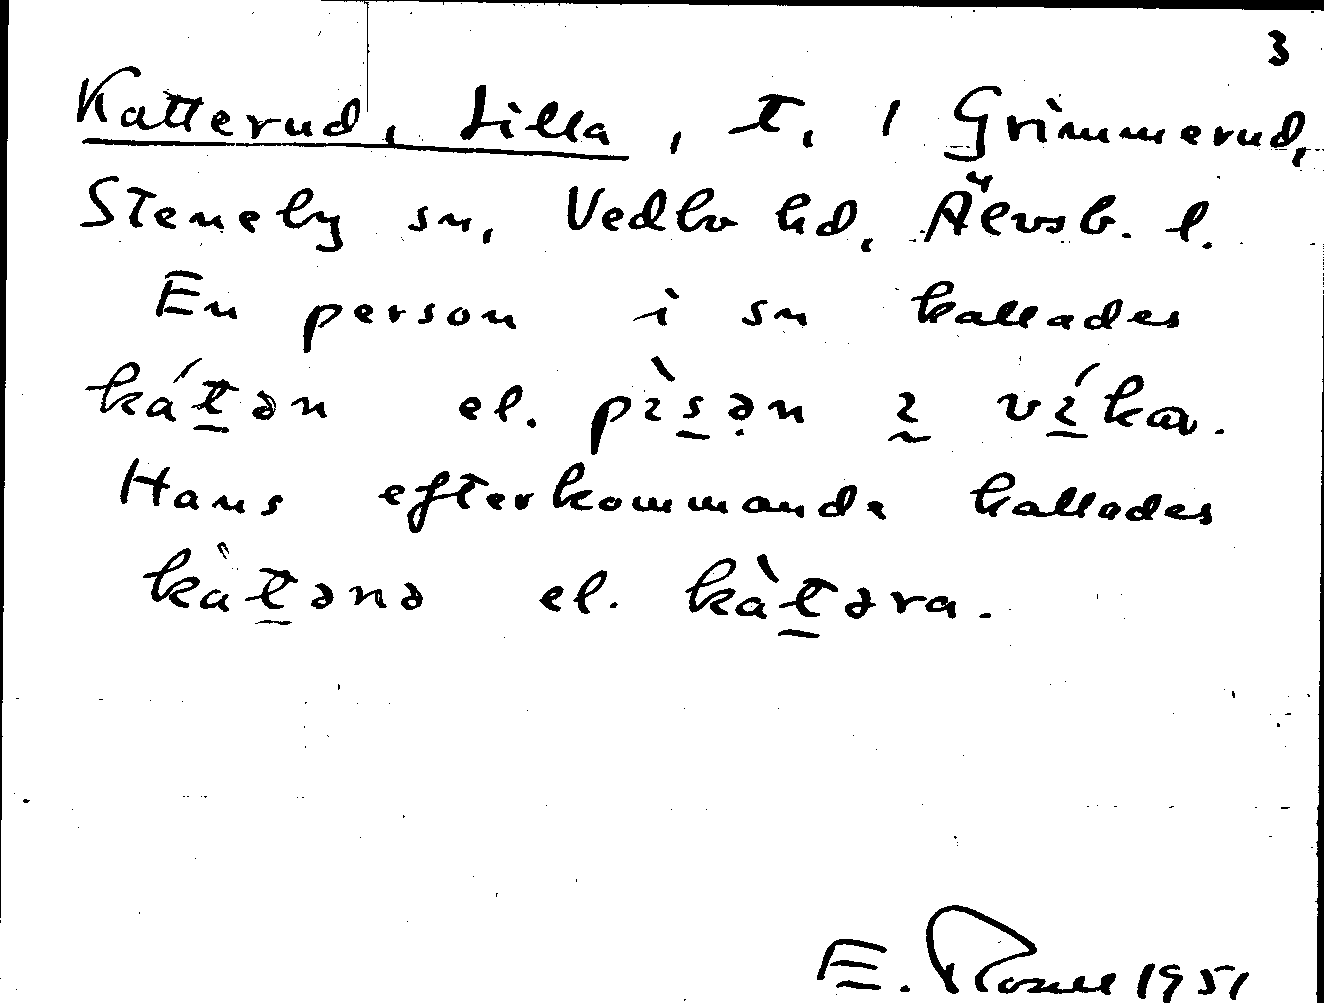 3
Katterud, Lilla, t. 1 Grimmerud,
Steneby sn, Vedbo hd, Älvsb. l.
En person i sn kallades
ká<u>t</u>ən el. pì<u>s</u>ən ı ví̱ka.
Hans efterkommande kallades
kà<u>t</u>ənə el. kà<u>t</u>əra.
E. Rosell 1951